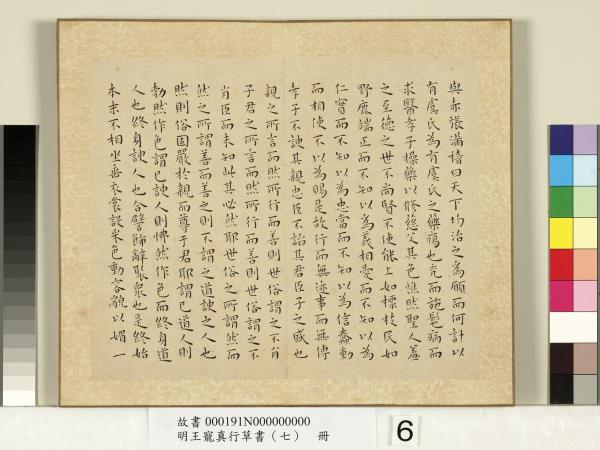 與赤張滿稽曰天下均治之為願而何計以
有虞氏為有虞氏之藥瘍也禿而施髢病而
求醫孝子操藥以修慈父其色燋然聖人羞
之至德之世不尚賢不使能上如標枝民如
野鹿端正而不知以為義相愛而不知以為
仁實而不知以為忠當而不知以為信蠢動
而相使不以為賜是故行而無迹事而無傳
孝子不諛其親忠臣不諂其君臣子之盛也
親之所言而然所行而善則世俗謂之不肖
子君之所言而然所行而善則世俗謂之不
肖臣而未知此其必然耶世俗之所謂然而
然之所謂善而善之則不謂之道諛之人也
然則俗固嚴於親而尊于君耶謂己道人則
勃然作色謂己諛人則怫然作色而終身道
人也終身諛人也合譬飾辭聚眾也是終始
本末不相坐垂衣裳設采色動容貌以媚一
故書 000191N000000000
明王寵真行草書（七） 冊
6